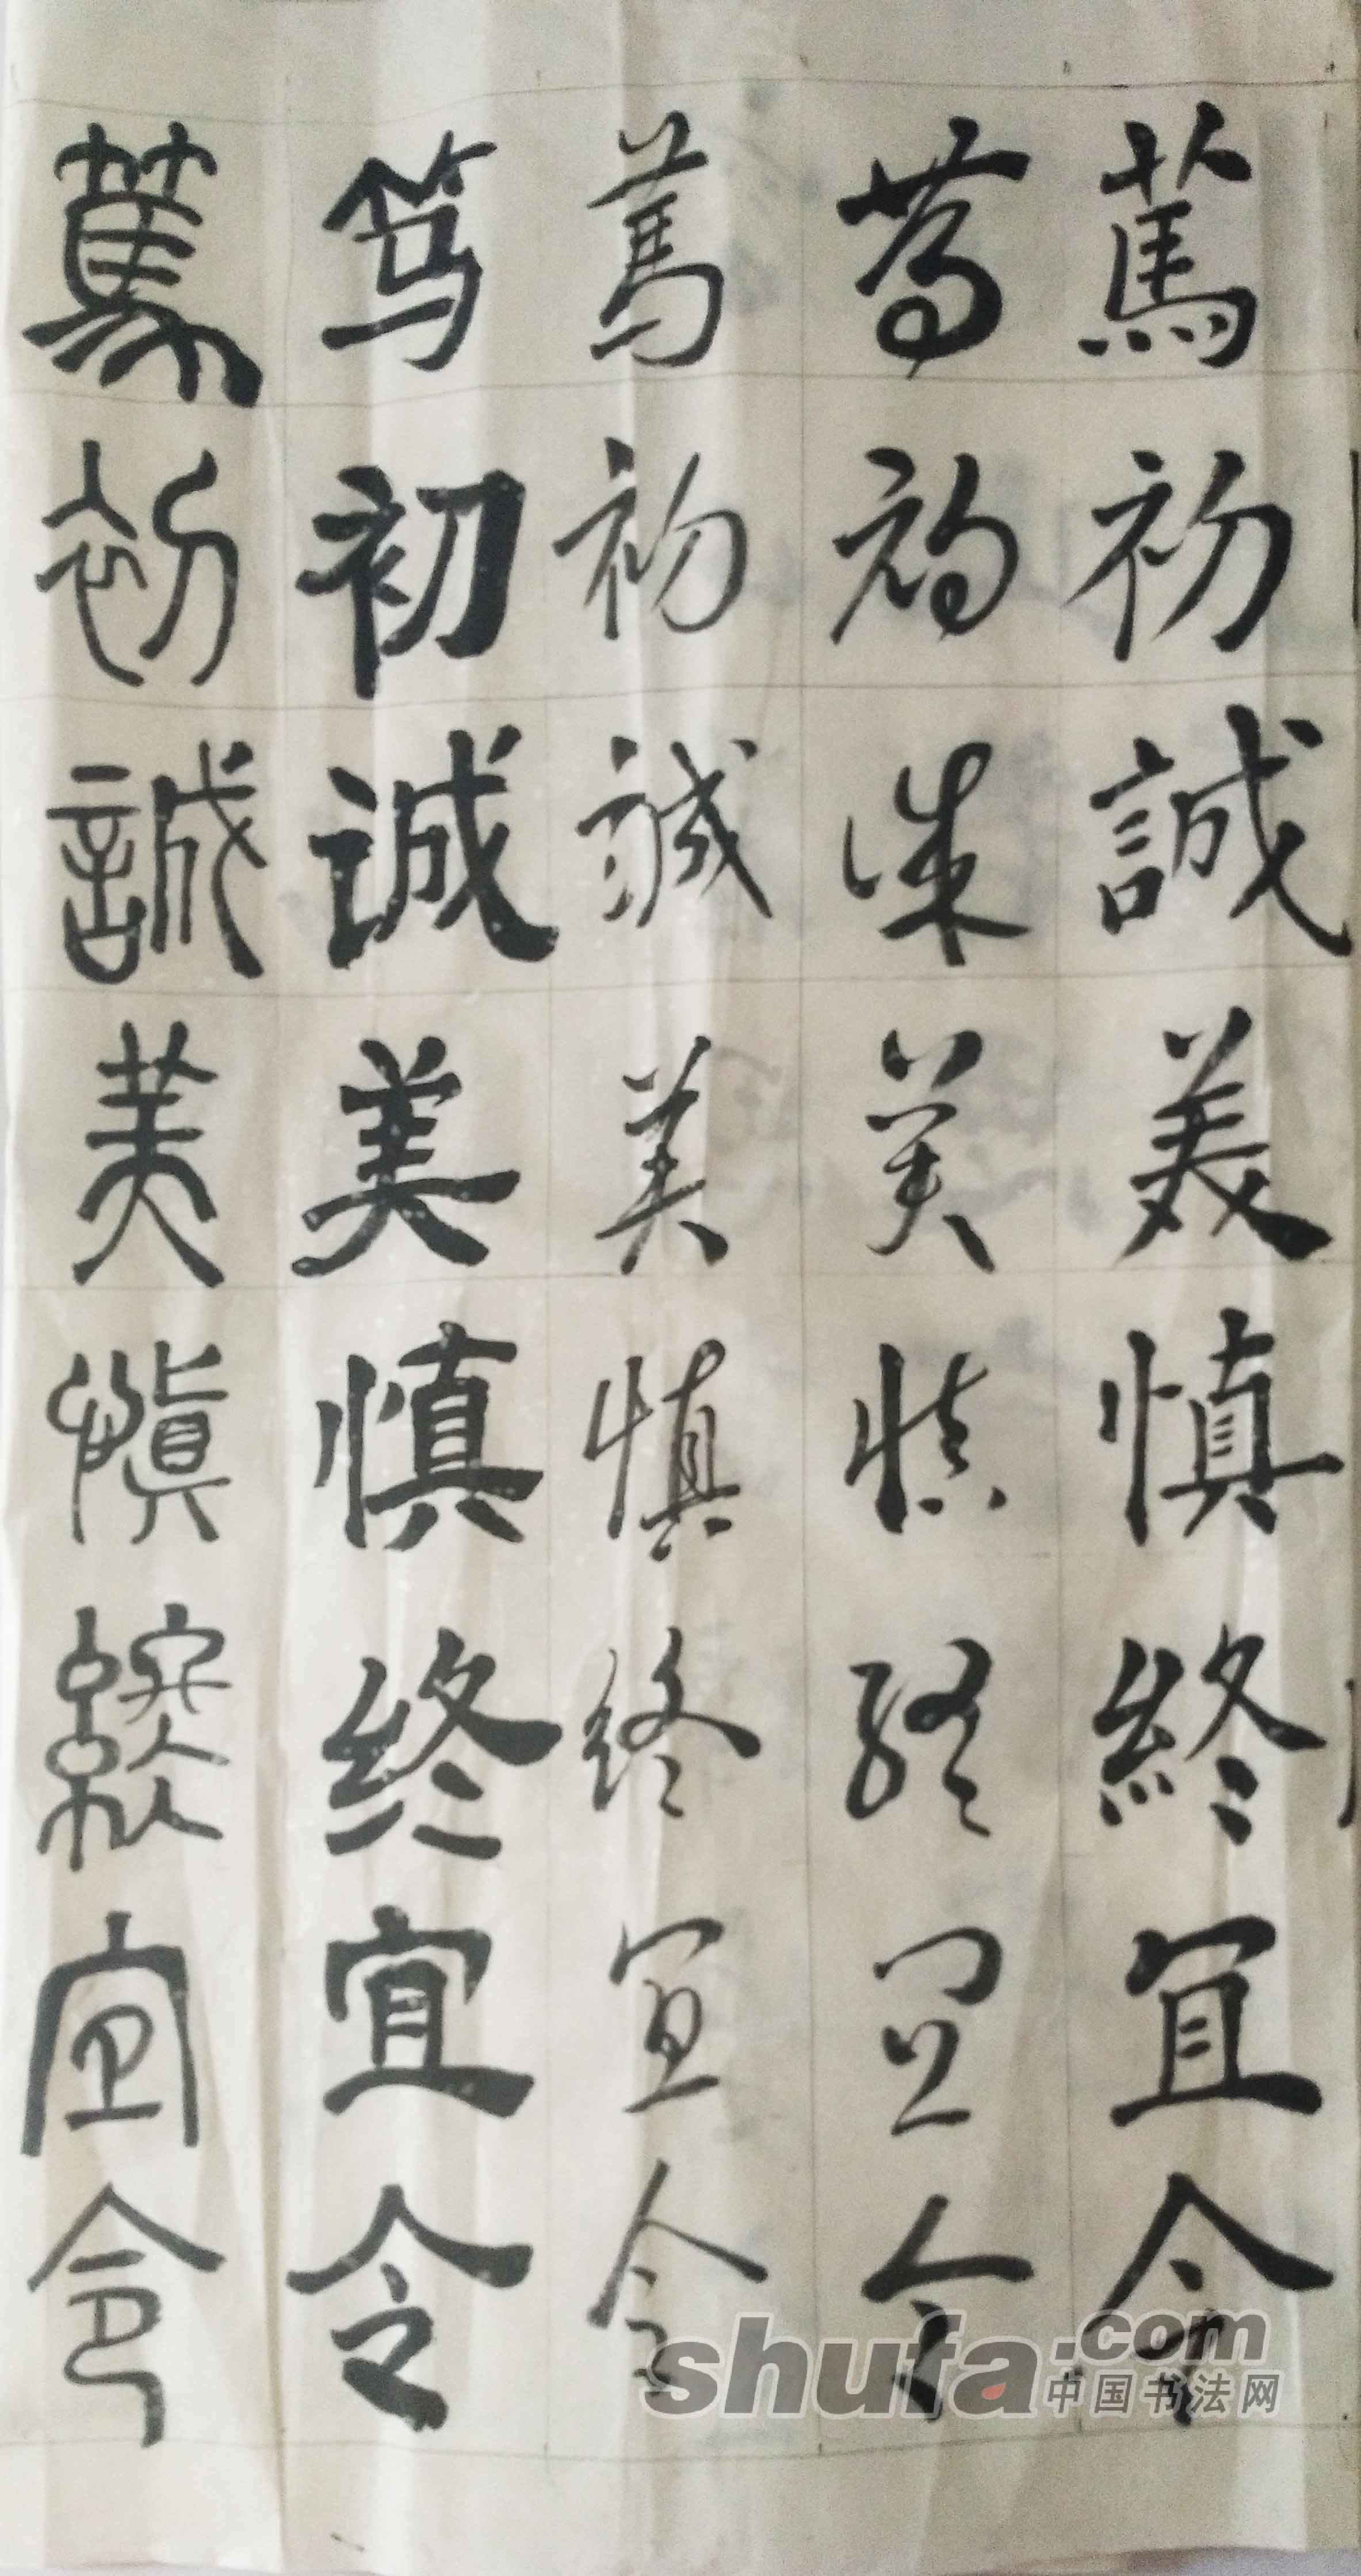 篤初誠美慎終宜令
篤初誠美慎終宜令
篤初誠美慎終宜令
笃初诚美慎终宜令
篤初誠美慎終宜令
shufa.com
中国书法网